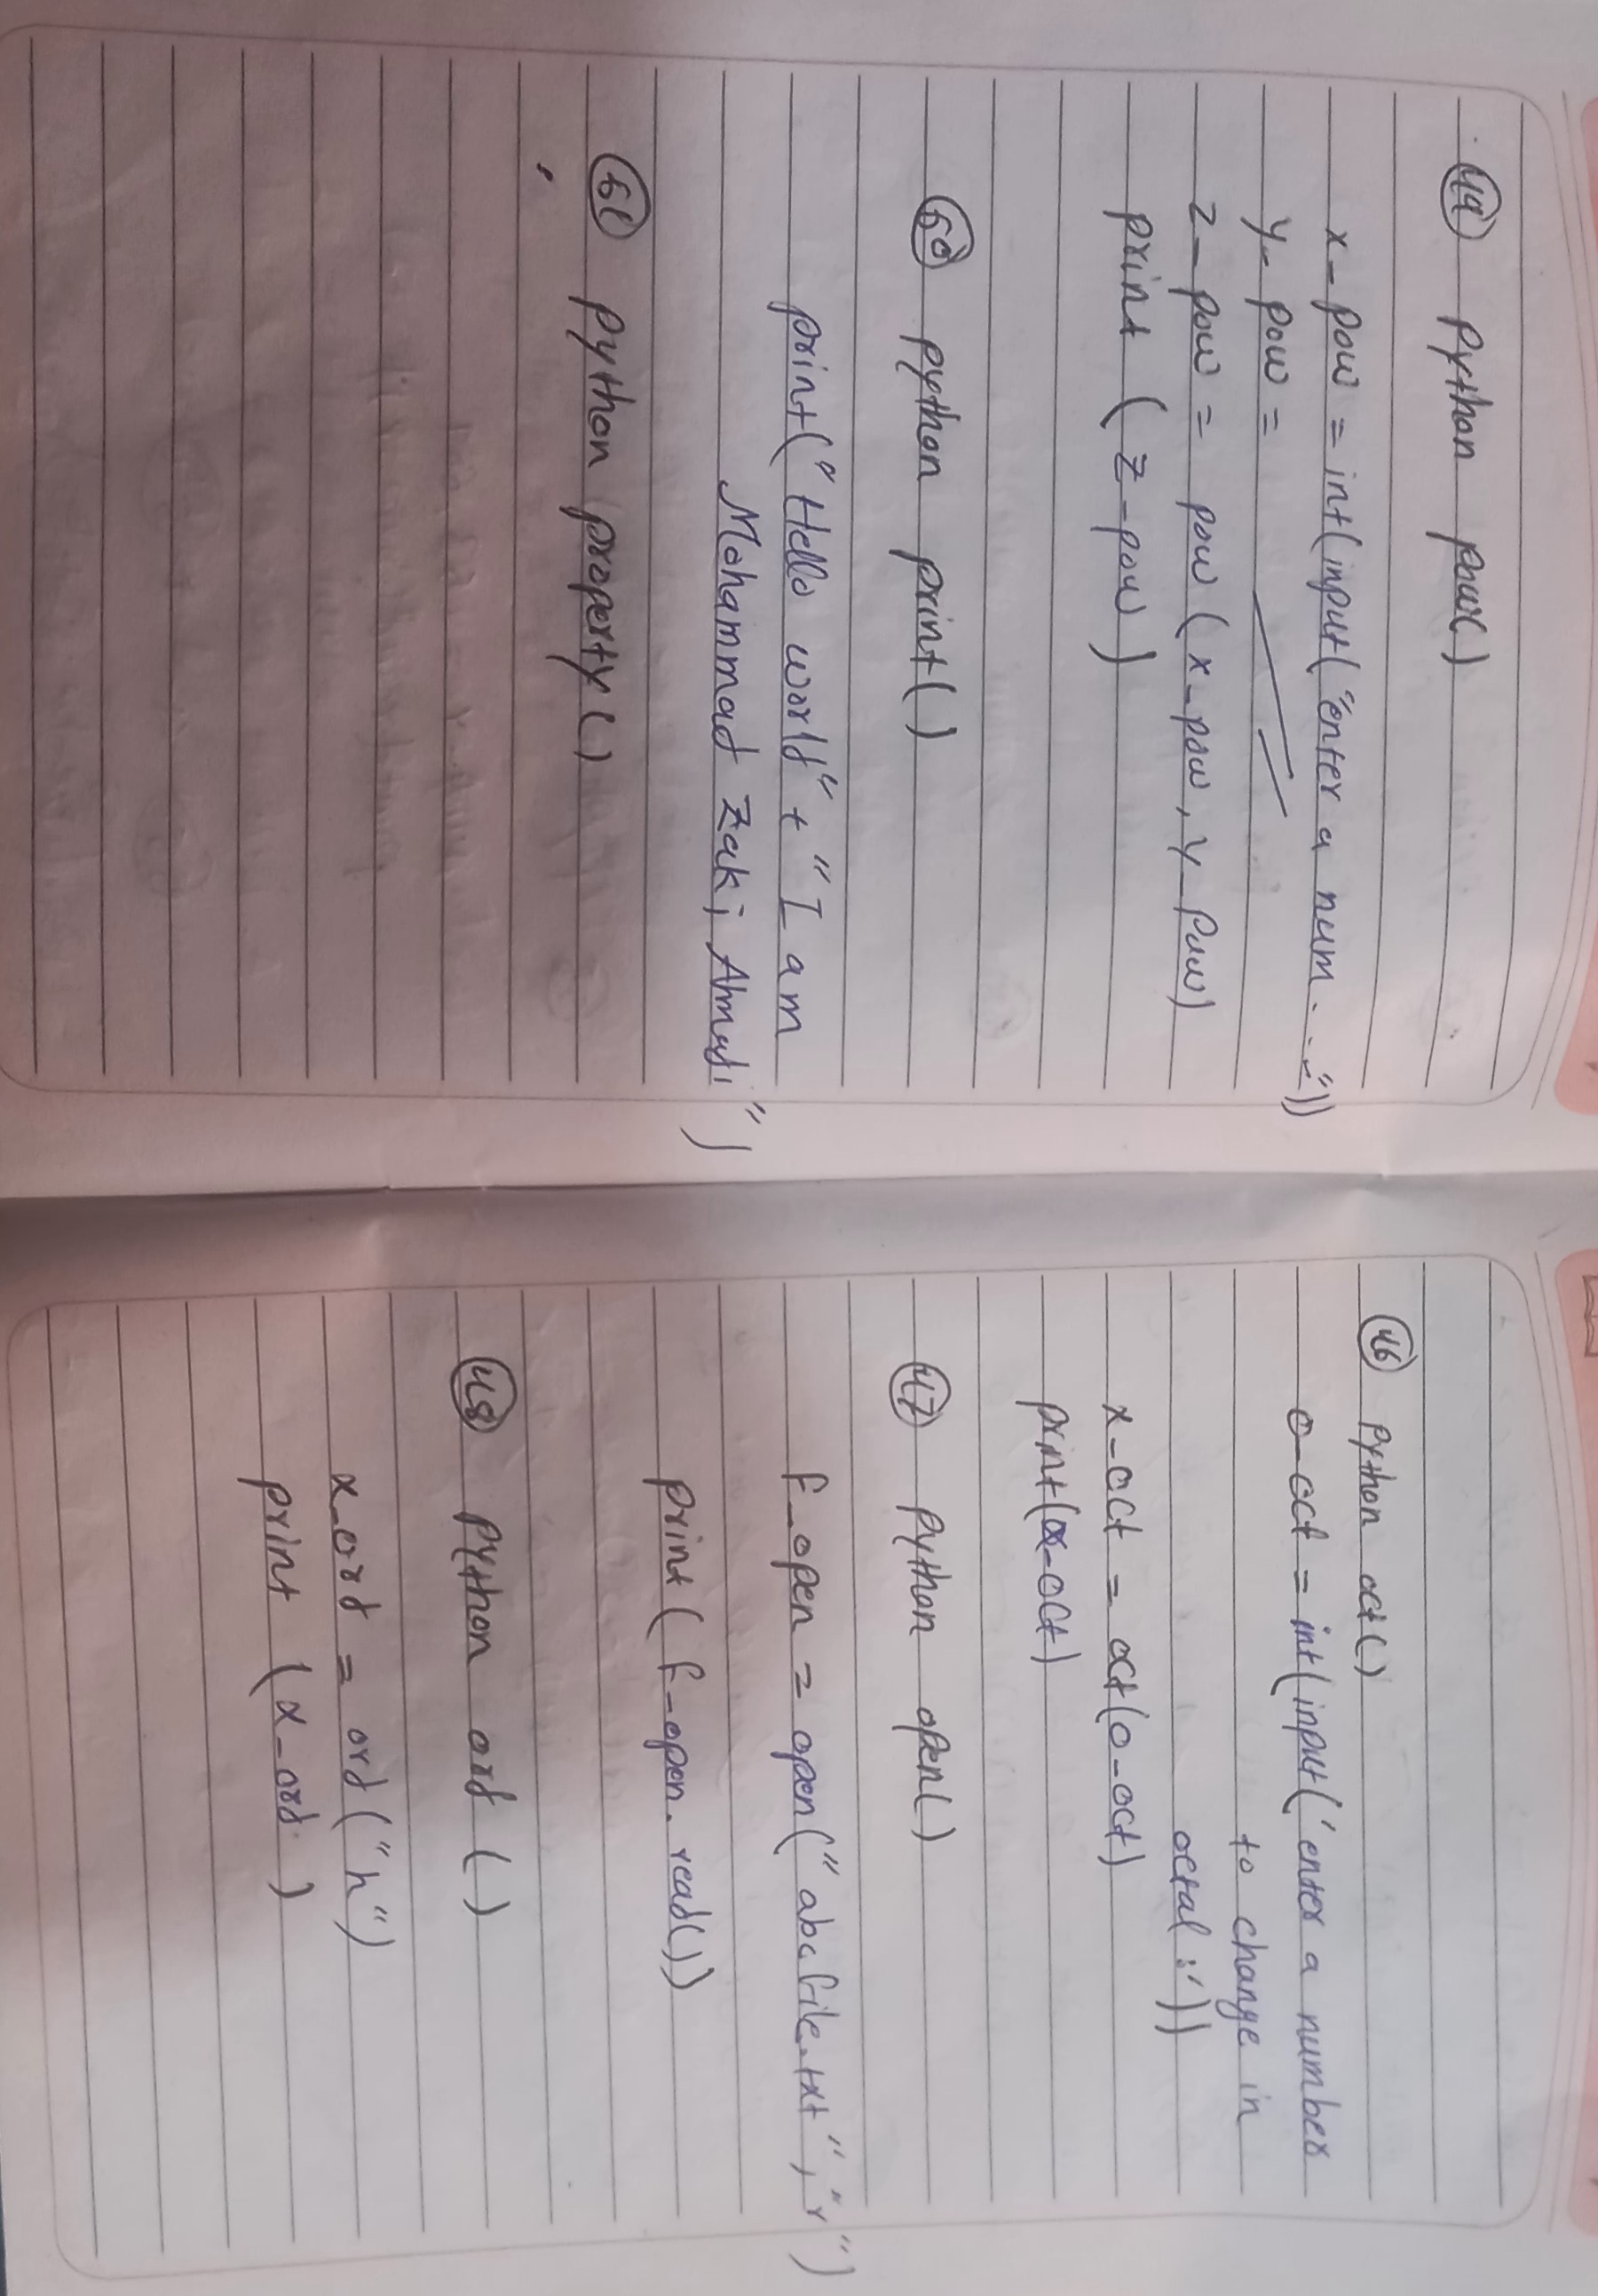 49 Python pow()
x_pow = int(input("enter a num..."))
y_pow =
z_pow = pow (x_pow, y_pow)
print (z_pow)
50 python print()
print("Hello world" + "I am
Mohammad Zaki Ahmadi")
51 python property()
46 Python oct()
o_oct = int(input('enter a number
to change in
octal :'))
x_oct = oct(o_oct)
print(x_oct)
47 Python open()
f_open = open("abcfile.txt", "r")
print(f_open.read())
48 Python ord ()
x_ord = ord("h")
print (x_ord)